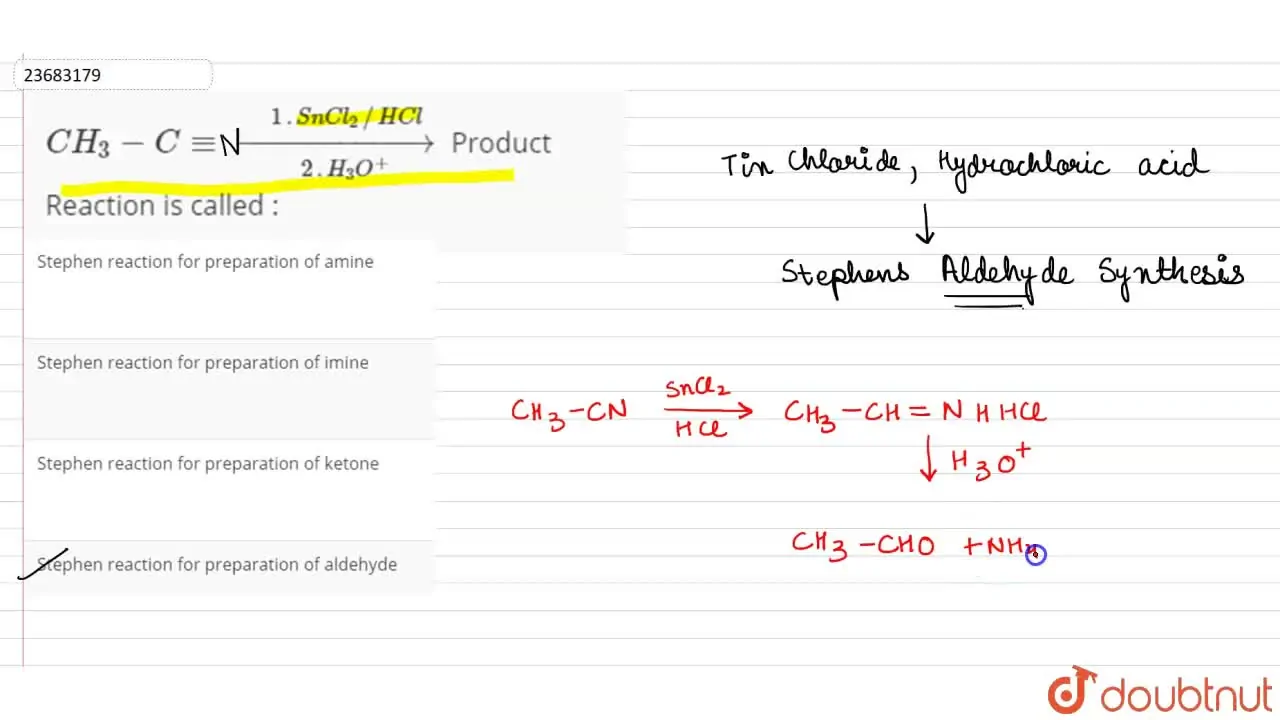 23683179
1. SnCl₂ / HCl
CH₃ – C ≡ N ⟶ Product
2. H₃O⁺
Reaction is called :
Stephen reaction for preparation of amine
Stephen reaction for preparation of imine
Stephen reaction for preparation of ketone
Stephen reaction for preparation of aldehyde
Tin Chloride, Hydrochloric acid
↓
Stephens Aldehyde Synthesis
SnCl₂
CH₃–CN ⟶ CH₃–CH=NHHCl
HCl
↓ H₃O⁺
CH₃–CHO +NH
doubtnut